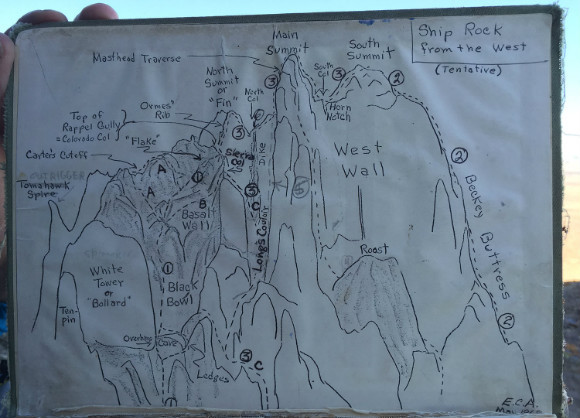 Ship Rock
from the West
(Tentative)
Main
Summit
South
Summit
Masthead Traverse
North
Summit
or
"Fin"
North
Col
South
Col
3
3
2
Horn
Notch
Ormes'
Rib
Top of
Rappel Gully
= Colorado Col
"Flake"
3
Carter's Cutoff
Dike
West
Wall
Tomahawk
Spire
A
A
1
B
Basalt
Wall
3
C
5
2
Beckey
Buttress
Long's Couloir
Roost
White
Tower
or
"Bollard"
1
Black
Bowl
Ten-
pin
Overhang
Cave
Ledges
3
C
2
E.C.A.